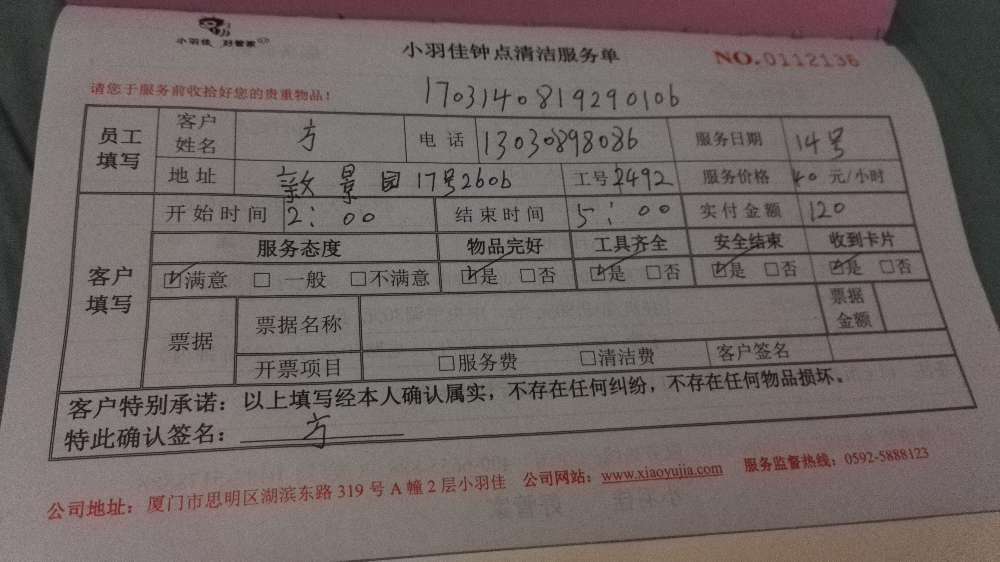 小羽佳 好管家
小羽佳钟点清洁服务单
NO.0112136
请您于服务前收拾好您的贵重物品！
1703140819290106
员工填写 客户姓名 方 电话 13030898086 服务日期 14号
地址 敦景园17号2606 工号 2492 服务价格 40 元/小时
客户填写 开始时间 2：00 结束时间 5：00 实付金额 120
服务态度 物品完好 工具齐全 安全结束 收到卡片
☑满意 □一般 □不满意 ☑是 □否 ☑是 □否 ☑是 □否 ☑是 □否
票据 票据名称 票据金额
开票项目 □服务费 □清洁费 客户签名
客户特别承诺：以上填写经本人确认属实，不存在任何纠纷，不存在任何物品损坏。
特此确认签名： 方
公司地址：厦门市思明区湖滨东路319号A幢2层小羽佳 公司网站：www.xiaoyujia.com 服务监督热线：0592-5888123